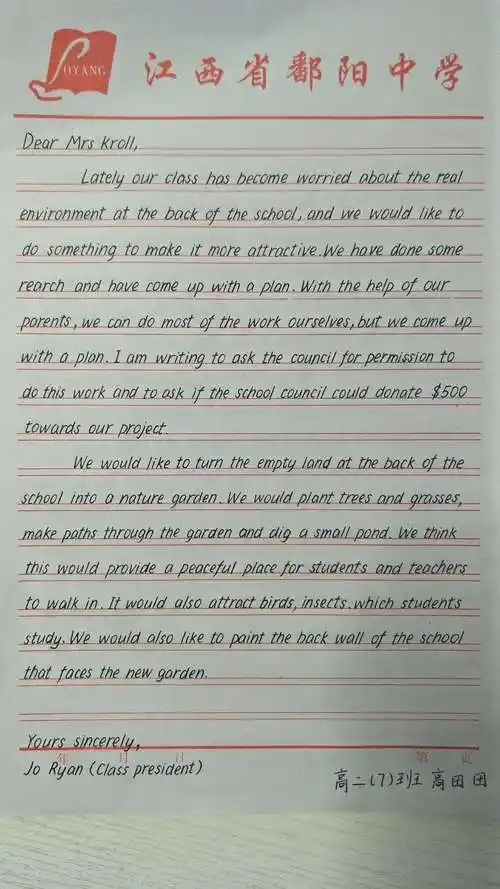 POYANG
江西省鄱阳中学
Dear Mrs Kroll,
Lately our class has become worried about the real
environment at the back of the school, and we would like to
do something to make it more attractive. We have done some
rearch and have come up with a plan. With the help of our
parents, we can do most of the work ourselves, but we come up
with a plan. I am writing to ask the council for permission to
do this work and to ask if the school council could donate $500
towards our project.
We would like to turn the empty land at the back of the
school into a nature garden. We would plant trees and grasses,
make paths through the garden and dig a small pond. We think
this would provide a peaceful place for students and teachers
to walk in. It would also attract birds, insects. which students
study. We would also like to paint the back wall of the school
that faces the new garden.
Yours sincerely,
年 月 日 第 页
Jo Ryan (Class president)
高二(7)班 高田田